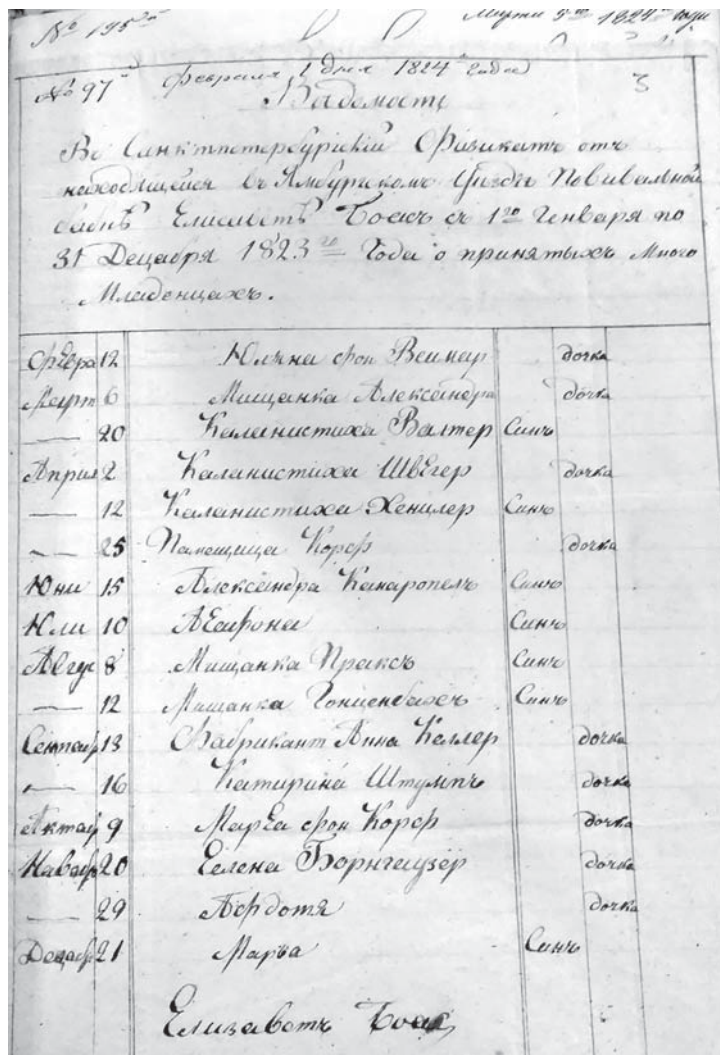 № 195
Марта 5го 1824го года
№ 97 Февраля 1 дня 1824 года 3
Ведомость
Въ Санктпетербургскій Физикатъ отъ
находящейся въ Ямбургскомъ Уѣздѣ Повивальной
бабкѣ Елисаветѣ Боасъ съ 1го Генваря по
31 Декабря 1823го Года о принятыхъ Мною
Младенцахъ.
Февра 12 Юлина фон Веимар дочка
Март 6 Мищанка Александра дочка
— 20 Каланистиха Валтер Синъ
Април 2 Каланистиха Швѣгер дочка
— 12 Каланистиха Хенцлер Синъ
— 25 Памещица Корф дочка
Юни 15 Александра Канаропелъ Синъ
Юли 10 Агафона Синъ
Авгус 8 Мищанка Праксъ Синъ
— 12 Мищанка Гонценбахъ Синъ
Сентяб 13 Фабрикант Анна Келлер дочка
— 16 Катирина Штумпъ дочка
Актяб 9 Марѣа фон Корф дочка
Наваб 20 Елена Борнгаузер дочка
— 29 Афдотя дочка
Декаб 21 Марья Синъ
Елизаветъ Боас